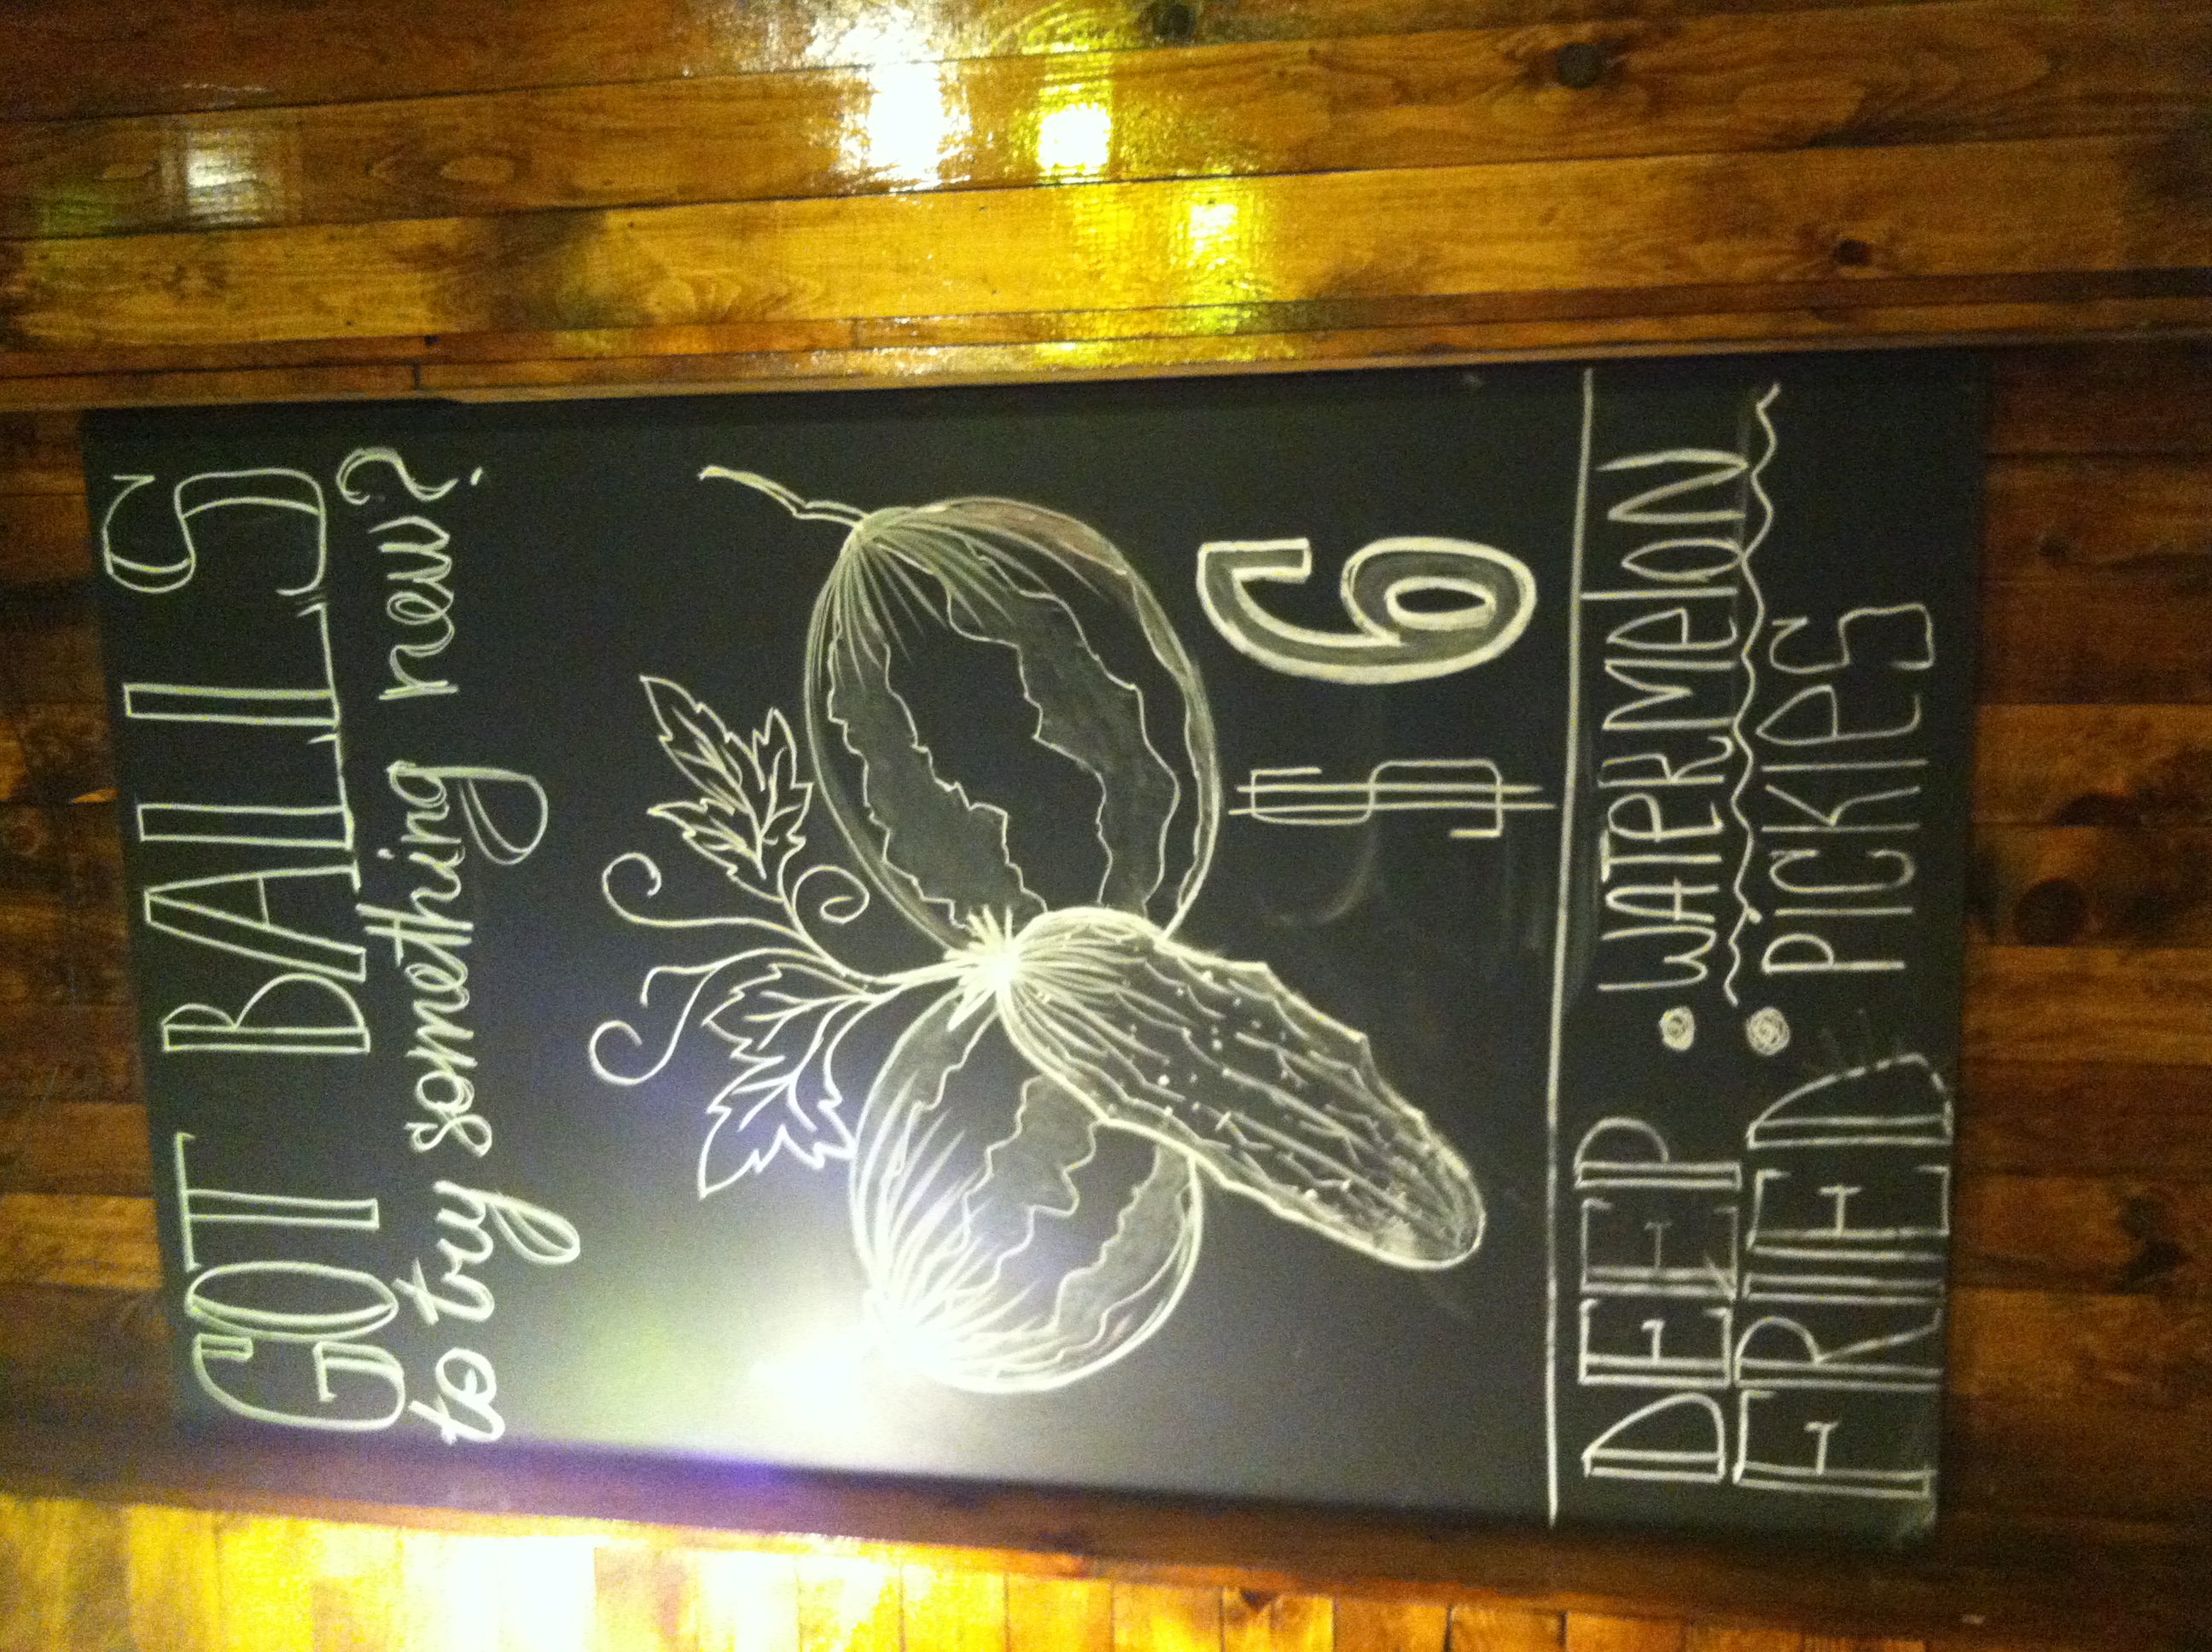 GOT BALLS
to try something new?
$6
DEEP FRIED
• WATERMelON
• PICKleS